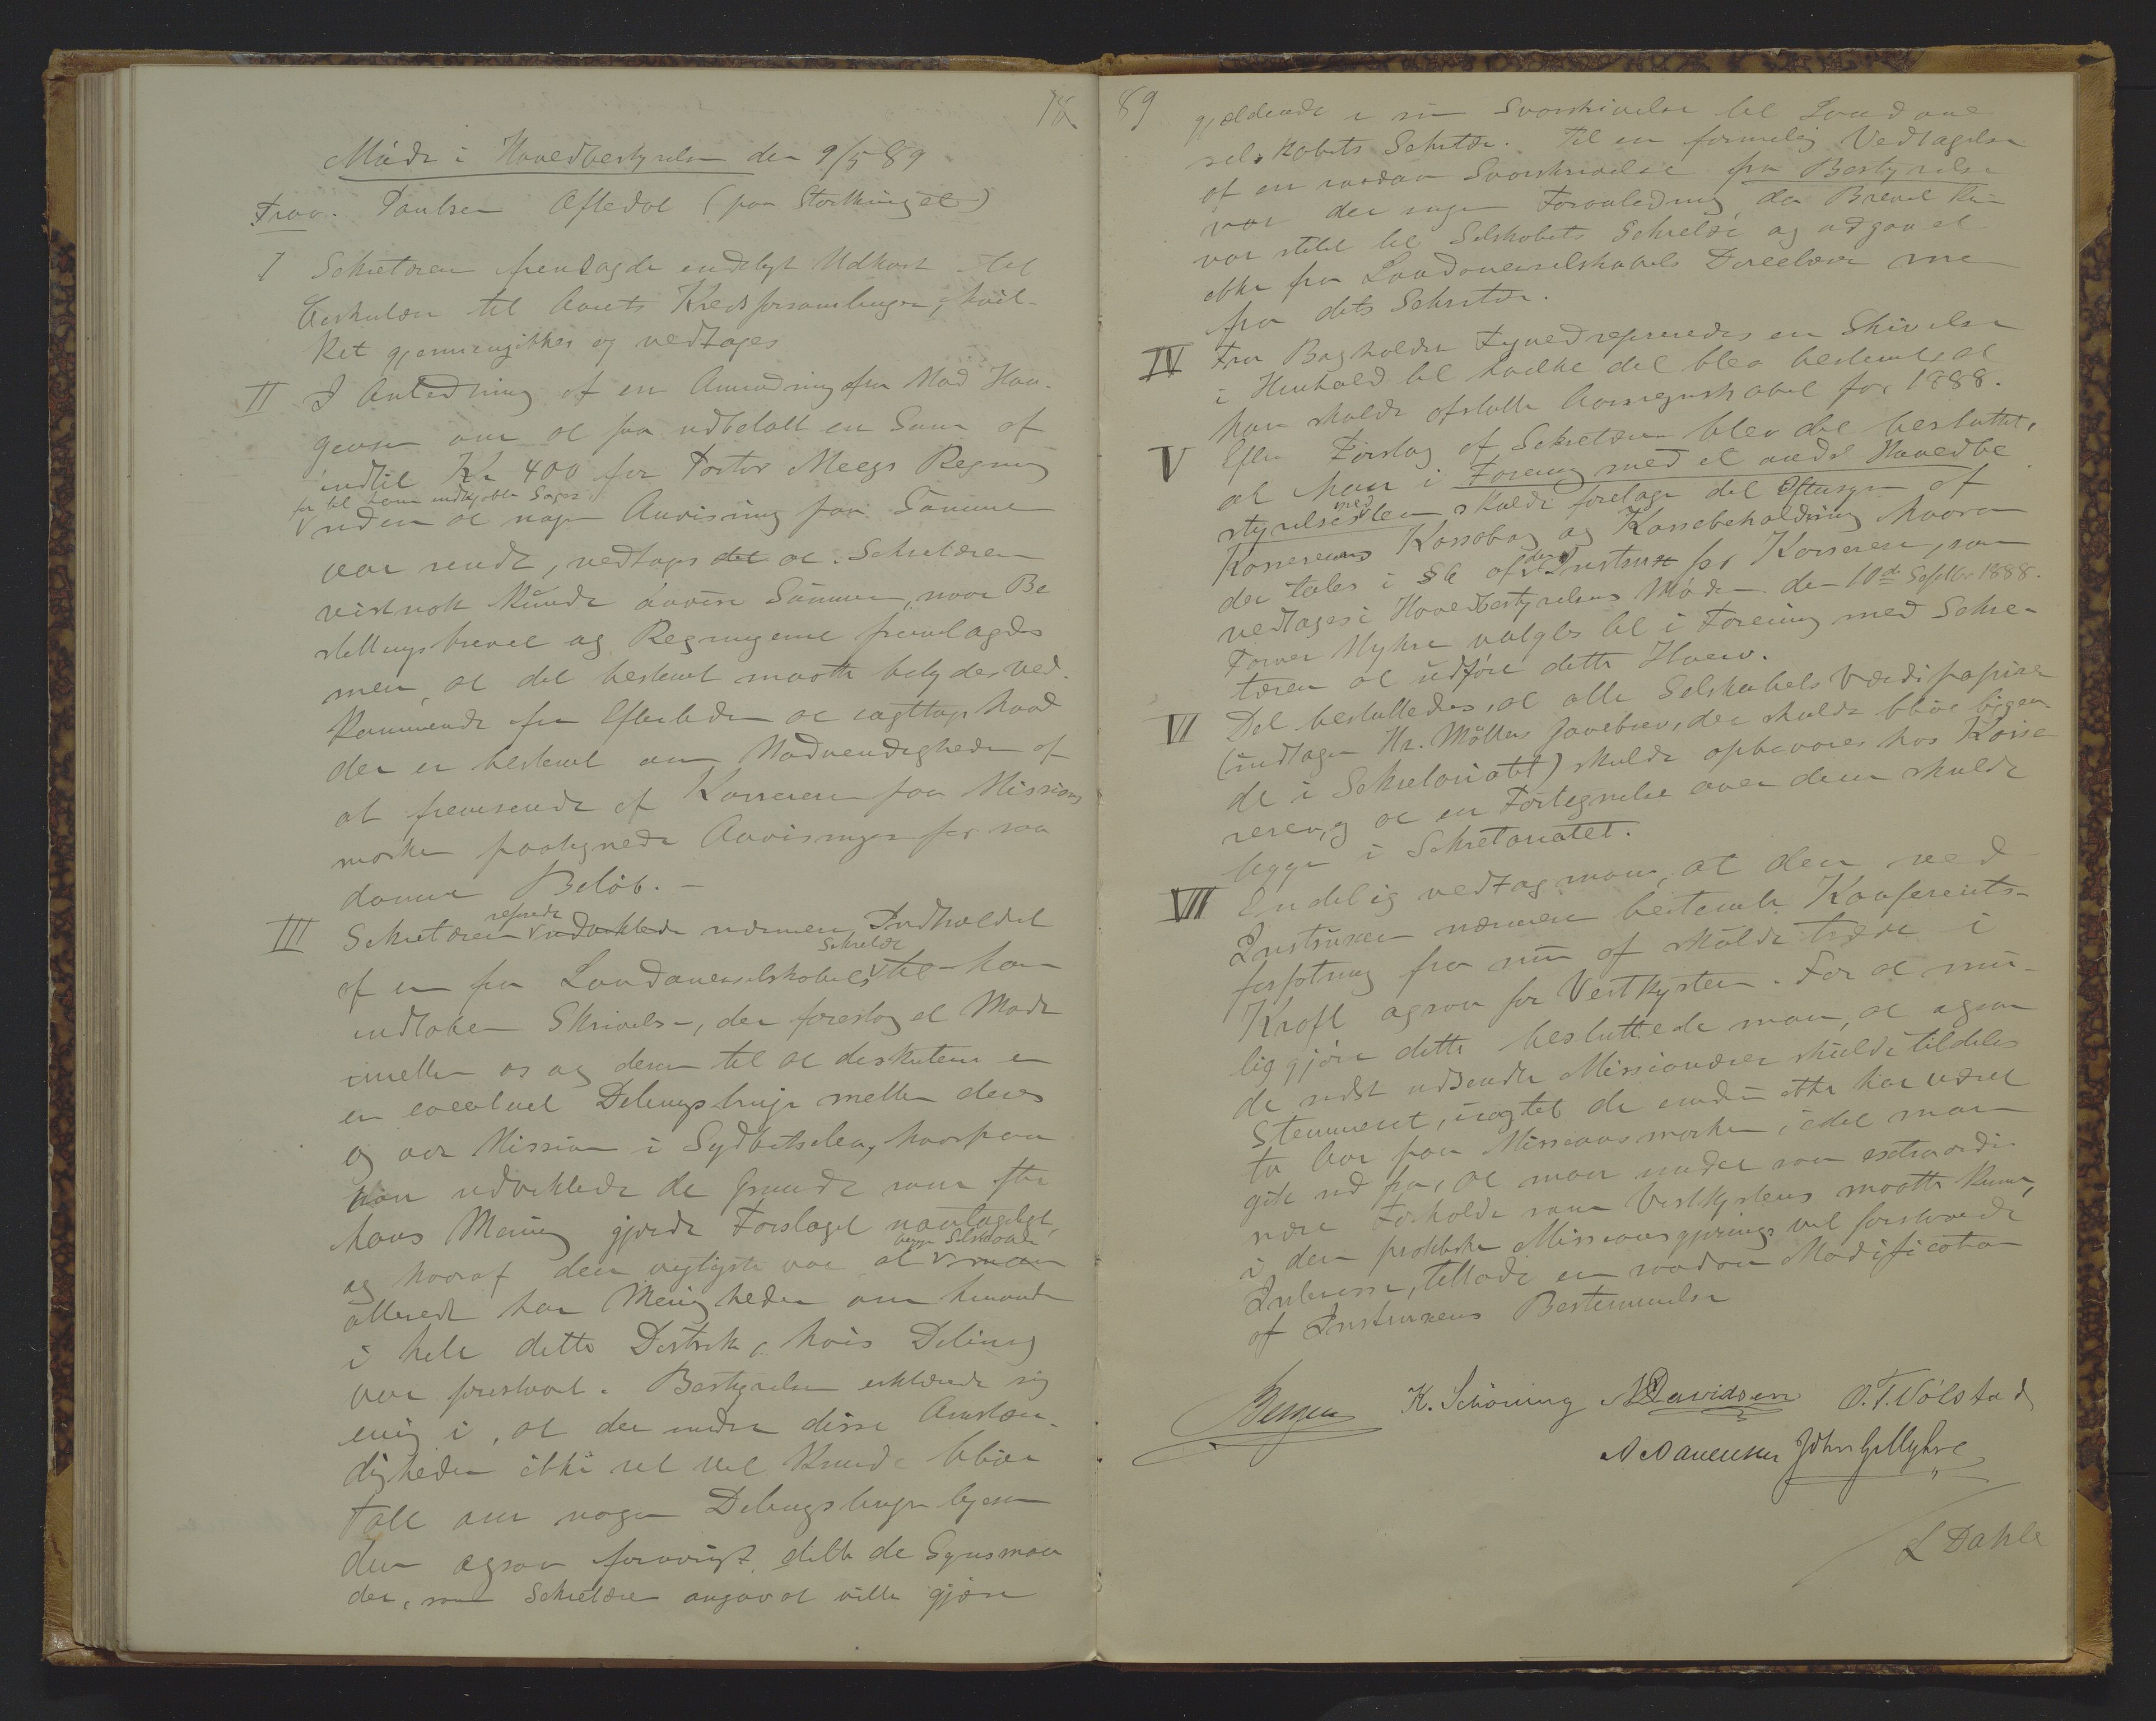 18
Möde i Hovedbestyrelsen den 9/5 89
Frav. Paulsen Oftedal (paa Storthinget)
I Sekretæren fremlagde endeligt Udkast til
Cirkulær til Aarets Kredsforsamlinger, hvil-
ket gjennemgikkes og vedtoges
II I Anledning af en Anmodning fra Mad Hau-
geusen om at faa udbetalt en Sum af
indtil Kr 400 for Pastor Meegs Regning
for til ham indkjøbte Sager
uden at nogen Anvisning paa Summen
var sendt, vedtoges det at Sekretæren
vistnok kunde anvise Summen, naar Be
stillingsbrevet og Regningerne fremlagdes
men, at det bestemt maatte betydes ved-
kommende for Efterleden at iagttage hvad
der er bestemt om Nødvendigheden af
at fremsende af Kassereren paa Missions
marken paategnede Anvisninger for saa
danne Beløb. -
III Sekretæren refererede udviklede nærmere Indholdet
af en fra Londonerselskabets Sekretær til ham
indløben Skrivelse, der foreslog et Møde
imellem os og dem til at diskutere en
en eventuel Delingslinje mellem deres
og vor Mission i Sydbetsileo, hvorpaa
han udviklede de Grunde som efter
hans Mening gjorde Forslaget uantageligt,
og hvoraf den vigtigste var at begge Selskaber man
allerede har Menigheder om hinanden
i hele dette Distrikt, hvis Deling
var foreslaaet. Bestyrelsen erklærede sig
enig i, at der under disse Omstæn-
digheder ikke ret vel kunde blive
Tale om nogen Delingslinje ligesom
den ogsaa forøvrigt delte de Synsmaa
der, som Sekretæren angav at ville gjøre
89
gjældende i sin Svarskrivelse til London
selskabets Sekretær. Til en formelig Vedtagelse
af en saadan Svarskrivelse fra Bestyrelsen
var der ingen Foranledning, da Brevet kun
var stilet til Selskabets Sekretær og udgaaet
ikke fra Londonerselskabets Direction men
fra dets Sekretær.
IV Fra Bogholder Fyved refereredes en Skrivelse
i Henhold til hvilke det blev bestemt, at
han skulde afslutte Aarsregnskabet for 1888.
V Efter Forslag af Sekretæren blev det besluttet,
at han i Forening med et andet Hovedbe
styrelsesmedlem skulde foretage det Eftersyn af
Kassererens Kassebog og Kassebeholdning hvorom
der tales i § 6 af den Instrux for Kassereren, som
vedtoges i Hovedbestyrelsens Møde den 10de Septbr 1888.
Farver Myhre valgtes til i Forening med Sekre-
tæren at udføre dette Hverv.
VI Det besluttedes, at alle Selskabets Værdipapirer
(undtagen Hr. Møllers Gavebrev, der skulde blive liggen-
de i Sekretariatet) skulde opbevares hos Kasse
reren, og at en Fortegnelse over dem skulde
ligge i Sekretariatet.
VII Endelig vedtog man, at den ved
Instruxen nærmere bestemte Konferents-
forfatning fra nu af skulde træde i
Kraft ogsaa for Vestkysten. For at mu-
liggjøre dette besluttede man, at ogsaa
de sidst udsendte Missionærer skulde tildeles
Stemmeret, uagtet de endnu ikke har været
to Aar paa Missionsmarken, idet man
gik ud fra, at man under saa extraordi-
nære Forholde som Vestkystens maatte kunne,
i den praktiske Missionsgjernings vel forstaaede
Interesse, tillade en saadan Modifikation
af Instruxens Bestemmelse
Bergen K. Schöning N Davidsen O. T. Vólstad
A Aanensen John G Myhre
L Dahle